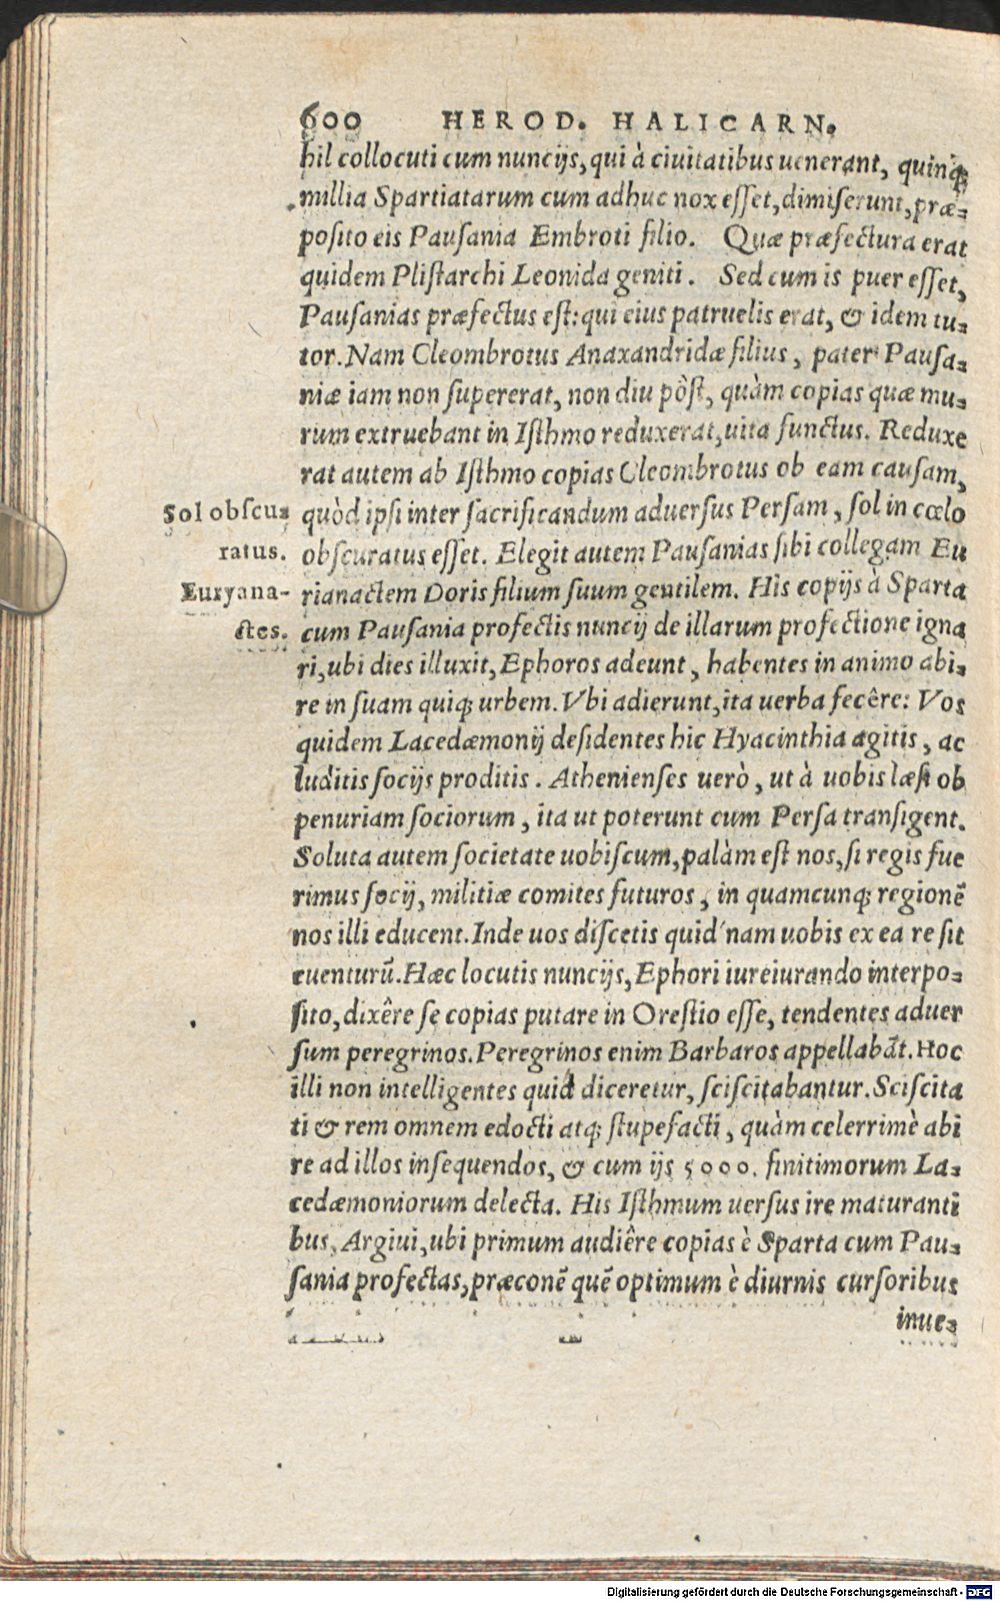 600 HEROD. HALICARN.
hil collocuti cum nuncijs, qui à ciuitatibus uenerant, quinq;
millia Spartiatarum cum adhuc nox esset, dimiserunt, præ-
posito eis Pausania Embroti filio. Quæ præfectura erat
quidem Plistarchi Leonida geniti. Sed cum is puer esset,
Pausanias præfectus est: qui eius patruelis erat, & idem tu-
tor. Nam Cleombrotus Anaxandridæ filius, pater Pausa-
niæ iam non supererat, non diu pòst, quàm copias quæ mu-
rum extruebant in Isthmo reduxerat, uita functus. Reduxe
rat autem ab Isthmo copias Cleombrotus ob eam causam,
Sol obscu- quòd ipsi inter sacrificandum aduersus Persam, sol in cœlo
ratus. obscuratus esset. Elegit autem Pausanias sibi collegam Eu
Euryana- rianactem Doris filium suum gentilem. His copijs à Sparta
ctes. cum Pausania profectis nuncij de illarum profectione igna
ri, ubi dies illuxit, Ephoros adeunt, habentes in animo abi-
re in suam quiq; urbem. Vbi adierunt, ita uerba fecêre: Vos
quidem Lacedæmonij desidentes hic Hyacinthia agitis, ac
luditis socijs proditis. Athenienses uerò, ut à uobis læsi ob
penuriam sociorum, ita ut poterunt cum Persa transigent.
Soluta autem societate uobiscum, palàm est nos, si regis fue
rimus socij, militiæ comites futuros, in quamcunq; regionē
nos illi educent. Inde uos discetis quid nam uobis ex ea re sit
euenturū. Hæc locutis nuncijs, Ephori iureiurando interpo-
sito, dixêre se copias putare in Orestio esse, tendentes aduer
sum peregrinos. Peregrinos enim Barbaros appellabāt. Hoc
illi non intelligentes quid diceretur, sciscitabantur. Sciscita
ti & rem omnem edocti atq; stupefacti, quàm celerrimè abi
re ad illos insequendos, & cum ijs 5000. finitimorum La-
cedæmoniorum delecta. His Isthmum uersus ire maturanti
bus, Argiui, ubi primum audiêre copias è Sparta cum Pau-
sania profectas, præconē quē optimum è diurnis cursoribus
inue-
Digitalisierung gefördert durch die Deutsche Forschungsgemeinschaft - DFG